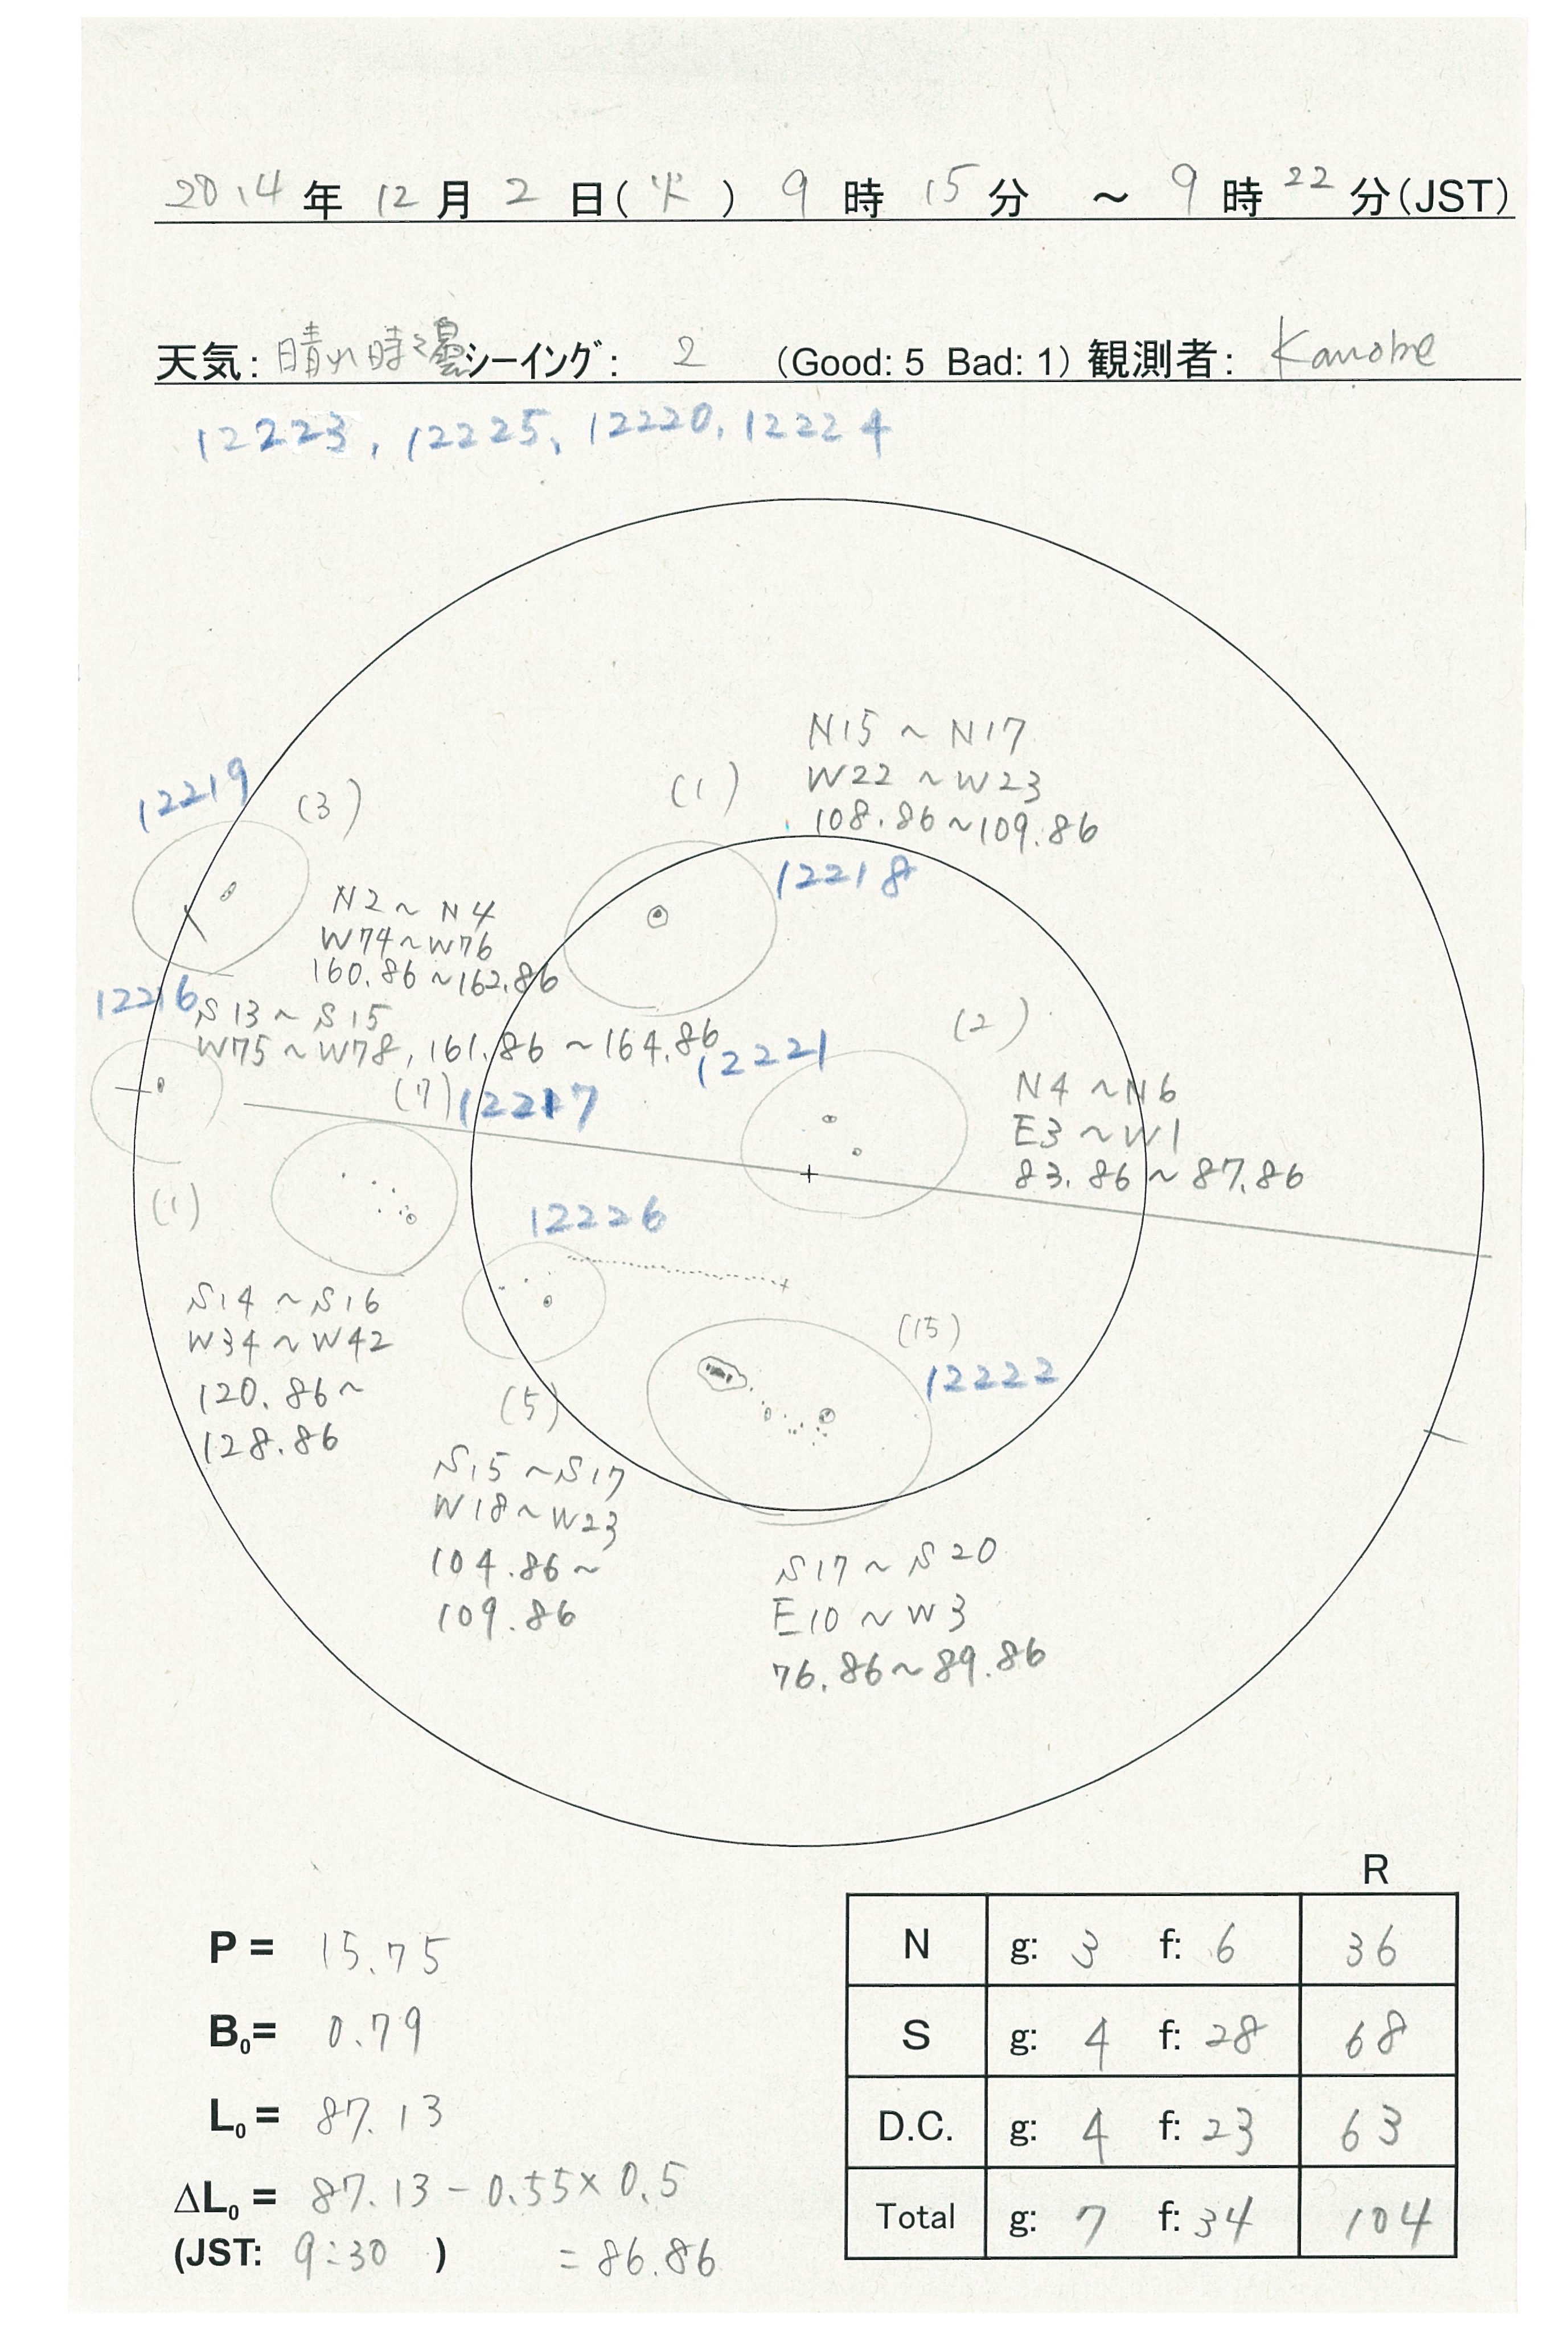 2014年 12月 2日(火) 9時 15分 ～ 9時 22分(JST)
天気: 晴れ時々曇 シーイング: 2 (Good: 5 Bad: 1) 観測者: Kanobe
12223, 12225, 12220, 12224
N15～N17
W22～W23
108.86～109.86
(1)
12218
12219
(3)
N2～N4
W74～W76
160.86～162.86
12216
S13～S15
W75～W78, 161.86～164.86
(1)
12221
(2)
N4～N6
E3～W1
83.86～87.86
(7)
12217
S14～S16
W34～W42
120.86～
128.86
12226
(5)
S15～S17
W18～W23
104.86～
109.86
(15)
12222
S17～S20
E10～W3
76.86～89.86
P = 15.75
B0 = 0.79
L0 = 87.13
ΔL0 = 87.13 - 0.55×0.5
(JST: 9:30 ) = 86.86
R
N g: 3 f: 6 36
S g: 4 f: 28 68
D.C. g: 4 f: 23 63
Total g: 7 f: 34 104